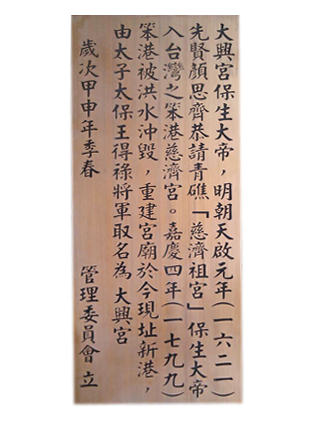 大興宮保生大帝，明朝天啟元年(一六二一)
先賢顏思齊恭請青礁「慈濟祖宮」保生大帝
入台灣之笨港慈濟宮。嘉慶四年(一七九九)
笨港被洪水沖毀，重建宮廟於今現址新港，
由太子太保王得祿將軍取名為 大興宮
歲次甲申年季春 管理委員會 立